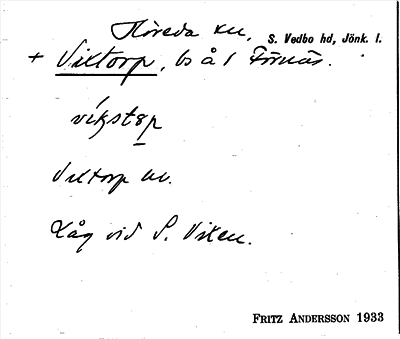 Höreda sn, S. Vedbo hd, Jönk. l.
+ Viktorp, bs å / Förnäs.
víkstǝp
Viktorp hm.
Låg vid S. Viken.
FRITZ ANDERSSON 1933